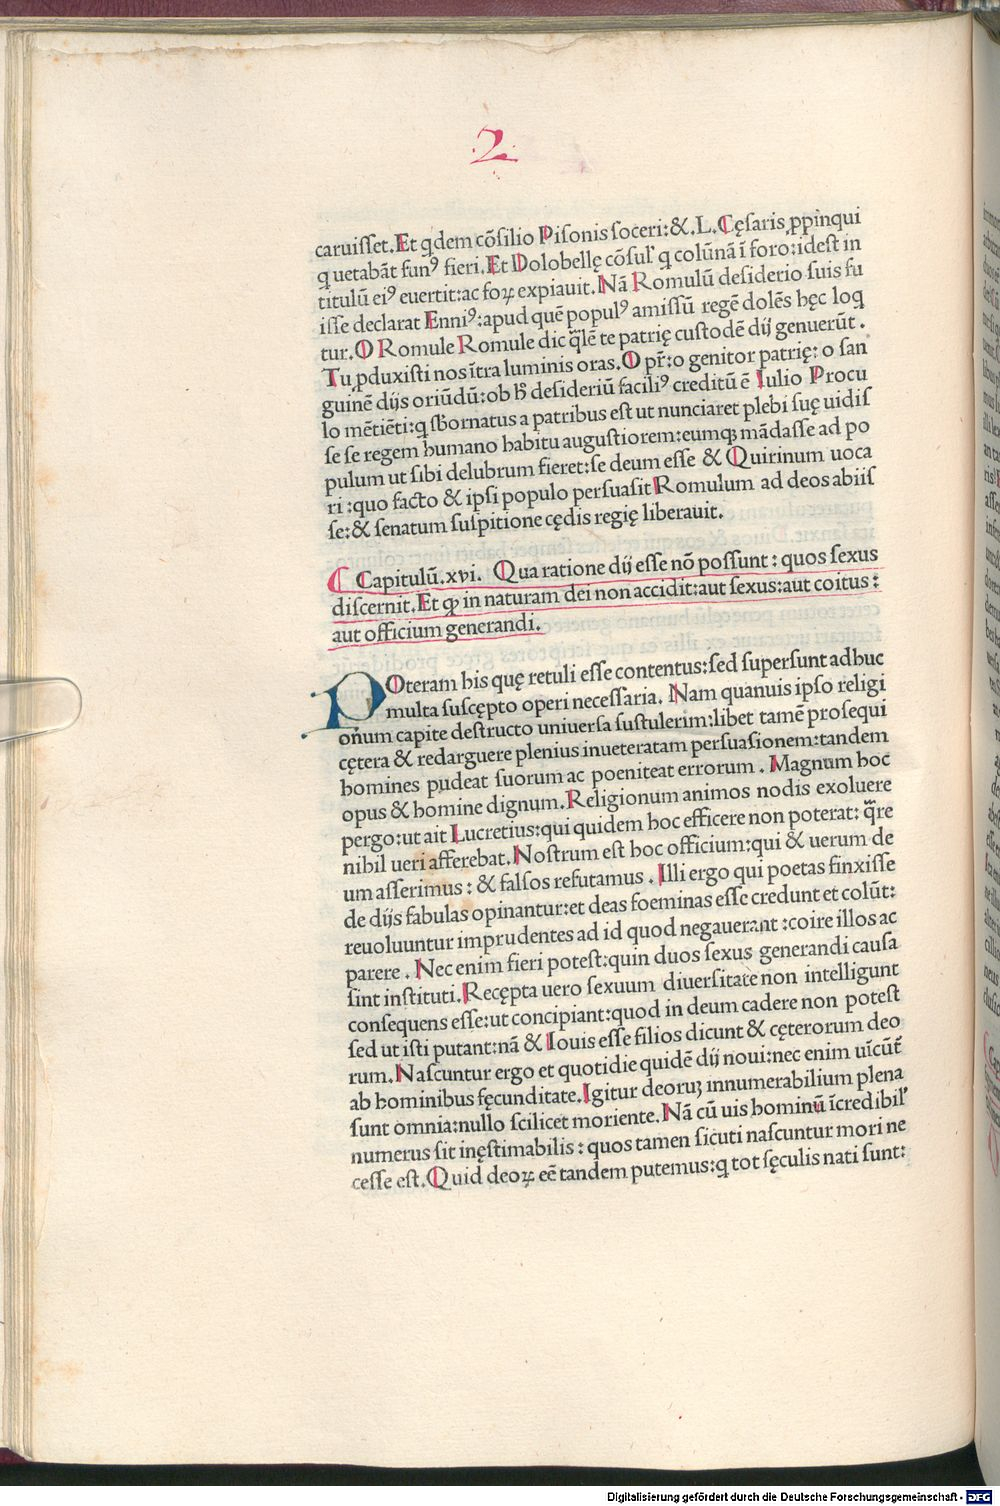 2
caruisset.Et qdem cõsilio Pisonis soceri:&.L.Cęsaris ꝓpinqui
q uetabãt funꝰ fieri.Et Dolobellę cõsul' q colũnã ĩ foro:idest in
titulũ eiꝰ euertit:ac foꝝ expiauit.Nã Romulũ desiderio suis fu
isse declarat Enniꝰ:apud quẽ populꝰ amissũ regẽ dolẽs hęc loq̃
tur.O Romule Romule dic q̃lẽ te patrię custodẽ dij genuerũt.
Tu ꝓduxisti nos ĩtra luminis oras.O pr̃:o genitor patrię: o san
guinẽ dijs oriũdũ:ob h̃ desideriũ faciliꝰ creditũ ẽ Iulio Procu
lo mẽtiẽti:q sbornatus a patribus est ut nunciaret plebi suę uidis
se se regem humano habitu augustiorem:eumqꝫ mãdasse ad po
pulum ut sibi delubrum fieret:se deum esse & Quirinum uoca
ri:quo facto & ipsi populo persuasit Romulum ad deos abiis
se:& senatum suspitione cędis regię liberauit.
Capitulũ.xvi. Qua ratione dij esse nõ possunt: quos sexus
discernit.Et ꝙ in naturam dei non accidit:aut sexus:aut coitus:
aut officium generandi.
POteram his quę retuli esse contentus:sed supersunt adhuc
multa suscępto operi necessaria. Nam quanuis ipso religi
oñum capite destructo uniuersa sustulerim:libet tamẽ prosequi
cętera & redarguere plenius inueteratam persuasionem:tandem
homines pudeat suorum ac poeniteat errorum. Magnum hoc
opus & homine dignum.Religionum animos nodis exoluere
pergo:ut ait Lucretius:qui quidem hoc efficere non poterat: q̃re
nihil ueri afferebat.Nostrum est hoc officium:qui & uerum de
um asserimus: & falsos refutamus. Illi ergo qui poetas finxisse
de dijs fabulas opinantur:et deas foeminas esse credunt et colũt:
reuoluuntur imprudentes ad id quod negauerant:coire illos ac
parere. Nec enim fieri potest:quin duos sexus generandi causa
sint instituti.Recępta uero sexuum diuersitate non intelligunt
consequens esse:ut concipiant:quod in deum cadere non potest
sed ut isti putant:nã & Iouis esse filios dicunt & cęterorum deo
rum.Nascuntur ergo et quotidie quidẽ dij noui:nec enim uĩcũt̃
ab hominibus fęcunditate.Igitur deoruꝫ innumerabilium plena
sunt omnia:nullo scilicet moriente.Nã cũ uis hominũ ĩcredibil'
numerus sit inęstimabilis: quos tamen sicuti nascuntur mori ne
cesse est.Quid deoꝝ eẽ tandem putemus:q tot sęculis nati sunt:
Digitalisierung gefördert durch die Deutsche Forschungsgemeinschaft - DFG